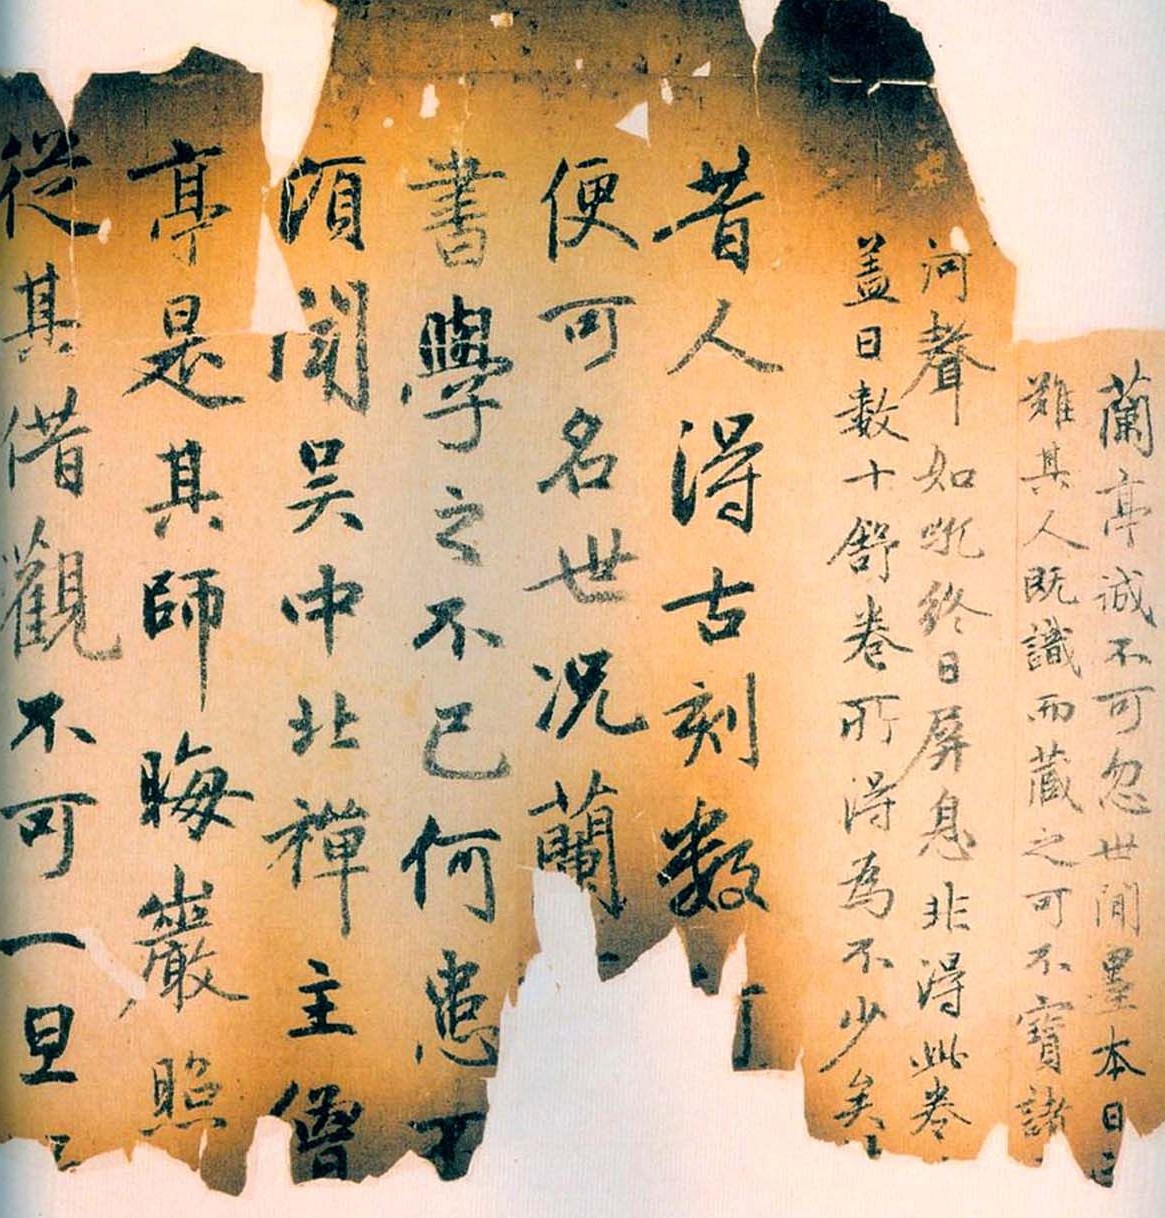 蘭亭誠不可忽世間墨本日
難其人既識而藏之可不寶諸
河聲如吼終日屏息非得此卷
盖日数十舒卷所得為不少矣
昔人得古刻数
便可名世况蘭
書學之不已何患不
頃聞吳中北禪主僧
亭是其師晦巖照
從其借觀不可一旦